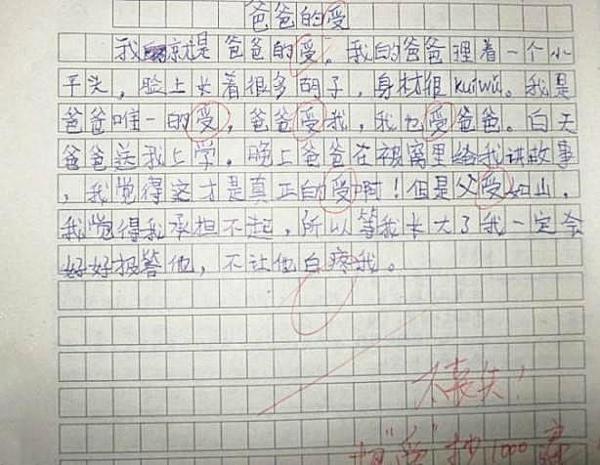 爸爸的受
我就是爸爸的受。我的爸爸理着一个小
平头，脸上长着很多胡子，身材很kuiwú。我是
爸爸唯一的受，爸爸受我，我也受爸爸。白天
爸爸送我上学。晚上爸爸在被窝里给我讲故事
，我觉得这才是真正的受啊！但是父受如山，
我觉得我承担不起，所以等我长大了我一定会
好好报答他，不让他白疼我。
太丧失！
把"爱"抄1000遍